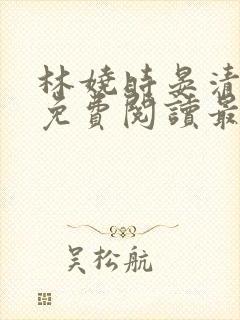 林嬈時晏清
免費閱讀最
吳松航